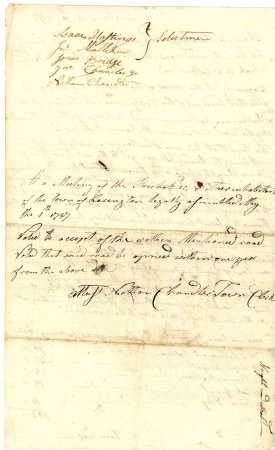 Isaac Hastings } Selectmen
Jos Mulliken
Jonas Bridge
Jno Chandler
Nathan Chandler
At a Meeting of the Freeholders & other inhabitants
of the town of Lexington legally assembled May
the 1st 1797
Voted to accept of the within Mentioned road
Voted that said road be opened within one year
from the above
Attest Nathan Chandler Town Clerk